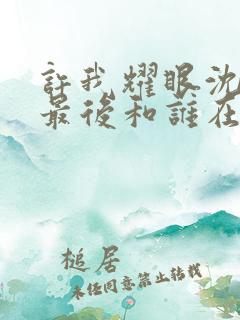 許我耀眼沈
最後和誰在
槌居
未經同意禁止轉載